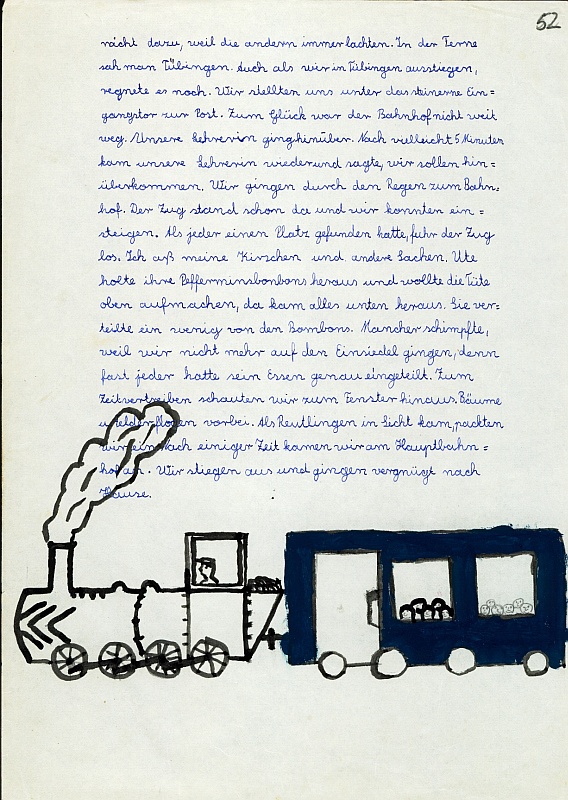 52
nicht dazu, weil die andern immer lachten. In der Ferne
sah man Tübingen. Auch als wir in Tübingen ausstiegen,
regnete es noch. Wir stellten uns unter das steinerne Ein=
gangstor zur Post. Zum Glück war der Bahnhof nicht weit
weg. Unsere Lehrerin ging hinüber. Nach vielleicht 5 Minuten
kam unsere Lehrerin wieder und sagte, wir sollen hin=
überkommen. Wir gingen durch den Regen zum Bahn=
hof. Der Zug stand schon da und wir konnten ein=
steigen. Als jeder einen Platz gefunden hatte, fuhr der Zug
los. Ich aß meine Kirschen und andere Sachen. Ute
holte ihre Pfefferminsbonbons heraus und wollte die Tüte
oben aufmachen, da kam alles unten heraus. Sie ver=
teilte ein wenig von den Bombons. Mancher schimpfte,
weil wir nicht mehr auf den Einsiedel gingen, denn
fast jeder hatte sein Essen genau eingeteilt. Zum
Zeitvertreiben schauten wir zum Fenster hinaus. Bäume
u. Felder flogen vorbei. Als Reutlingen in Sicht kam, packten
wir ein. Nach einiger Zeit kamen wir am Hauptbahn=
hof an. Wir stiegen aus und gingen vergnügt nach
Hause.